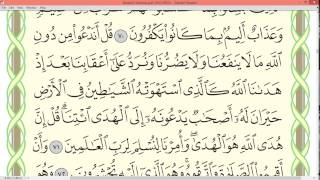 وَعَذَابٌ أَلِيمٌۢ بِمَا كَانُوا۟ يَكْفُرُونَ ٧٠ قُلْ أَنَدْعُوا۟ مِن دُونِ
ٱللَّهِ مَا لَا يَنفَعُنَا وَلَا يَضُرُّنَا وَنُرَدُّ عَلَىٰٓ أَعْقَابِنَا بَعْدَ إِذْ
هَدَىٰنَا ٱللَّهُ كَٱلَّذِى ٱسْتَهْوَتْهُ ٱلشَّيَـٰطِينُ فِى ٱلْأَرْضِ
حَيْرَانَ لَهُۥٓ أَصْحَـٰبٌ يَدْعُونَهُۥٓ إِلَى ٱلْهُدَى ٱئْتِنَا ۗ قُلْ إِنَّ
هُدَى ٱللَّهِ هُوَ ٱلْهُدَىٰ ۖ وَأُمِرْنَا لِنُسْلِمَ لِرَبِّ ٱلْعَـٰلَمِينَ ٧١ وَأَنْ
أَقِيمُوا۟ ٱلصَّلَوٰةَ وَٱتَّقُوهُ ۚ وَهُوَ ٱلَّذِىٓ إِلَيْهِ تُحْشَرُونَ ٧٢ وَهُوَ